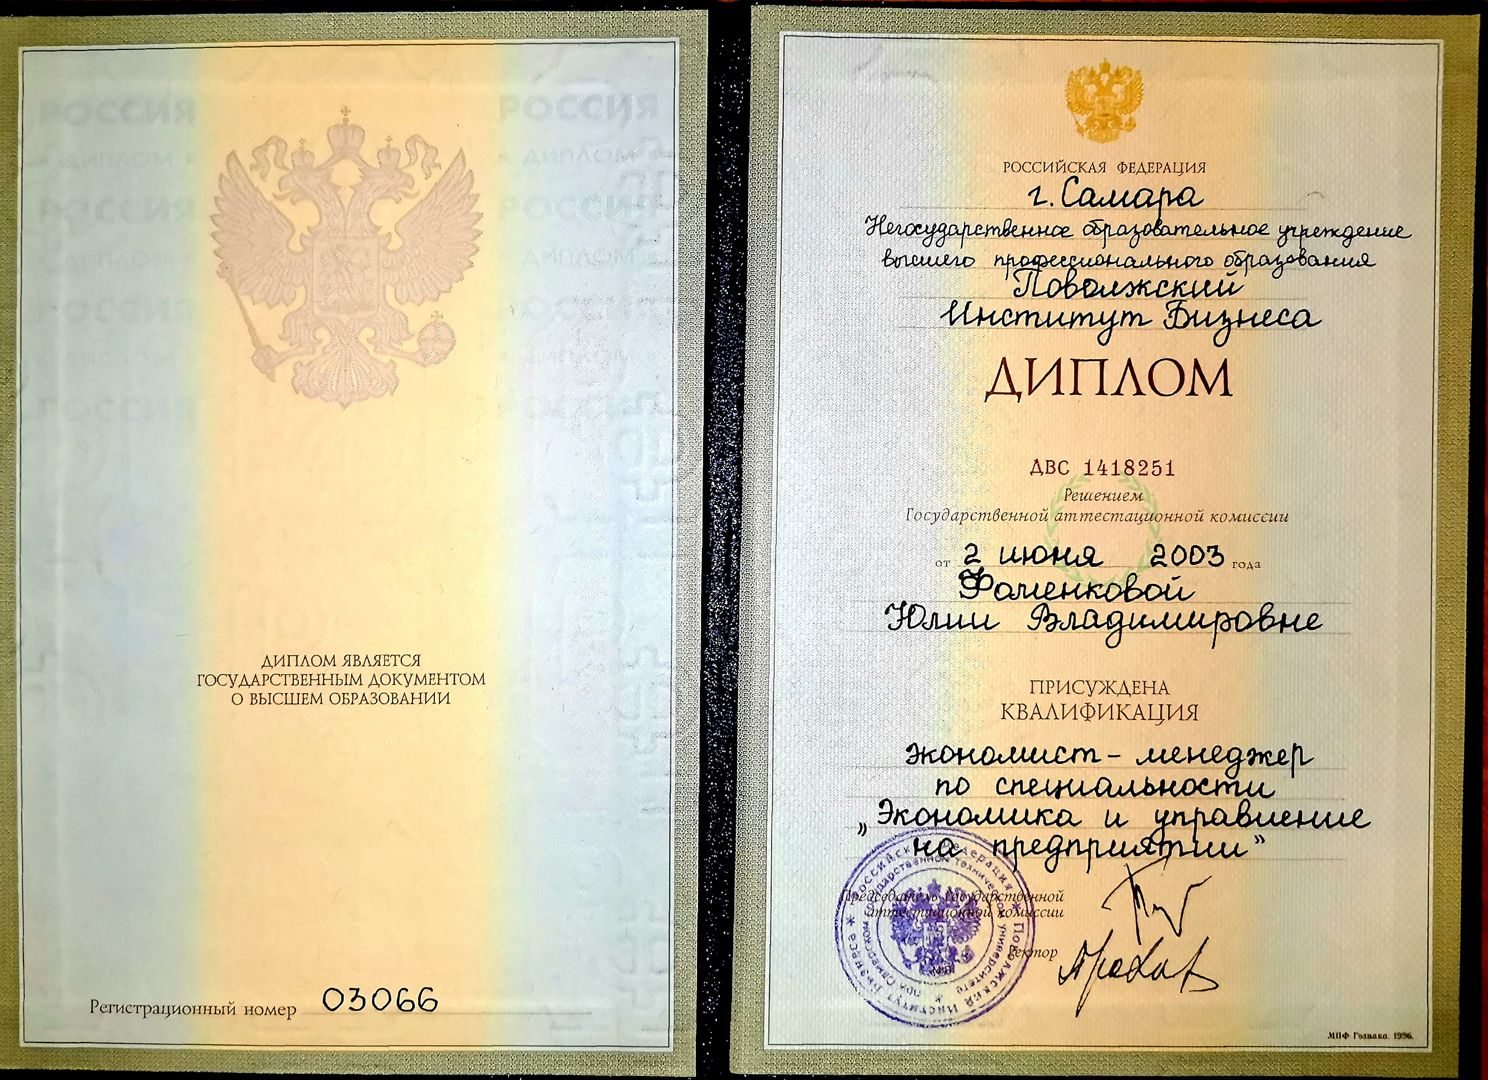 РОССИЯ
РОССИЯ
• ДИПЛОМ •
• ДИПЛОМ •
РОССИЯ
РОССИЯ
• ДИПЛОМ •
• ДИПЛОМ •
РОССИЯ
РОССИЯ
• ДИПЛОМ •
• ДИПЛОМ •
РОССИЯ
РОССИЯ
ДИПЛОМ ЯВЛЯЕТСЯ
ГОСУДАРСТВЕННЫМ ДОКУМЕНТОМ
О ВЫСШЕМ ОБРАЗОВАНИИ
Регистрационный номер 03066
РОССИЙСКАЯ ФЕДЕРАЦИЯ
г. Самара
Негосударственное образовательное учреждение
высшего профессионального образования
Поволжский
Институт Бизнеса
ДИПЛОМ
ДВС 1418251
Решением
Государственной аттестационной комиссии
от 2 июня 2003 года
Фоменковой
Юлии Владимировне
ПРИСУЖДЕНА
КВАЛИФИКАЦИЯ
экономист - менеджер
по специальности
„Экономика и управление
на предприятии"
Председатель Государственной
аттестационной комиссии
Ректор
Российская Федерация * Поволжский Институт Бизнеса *
при Самарском государственном техническом университете *
МПФ Гознака. 1996.